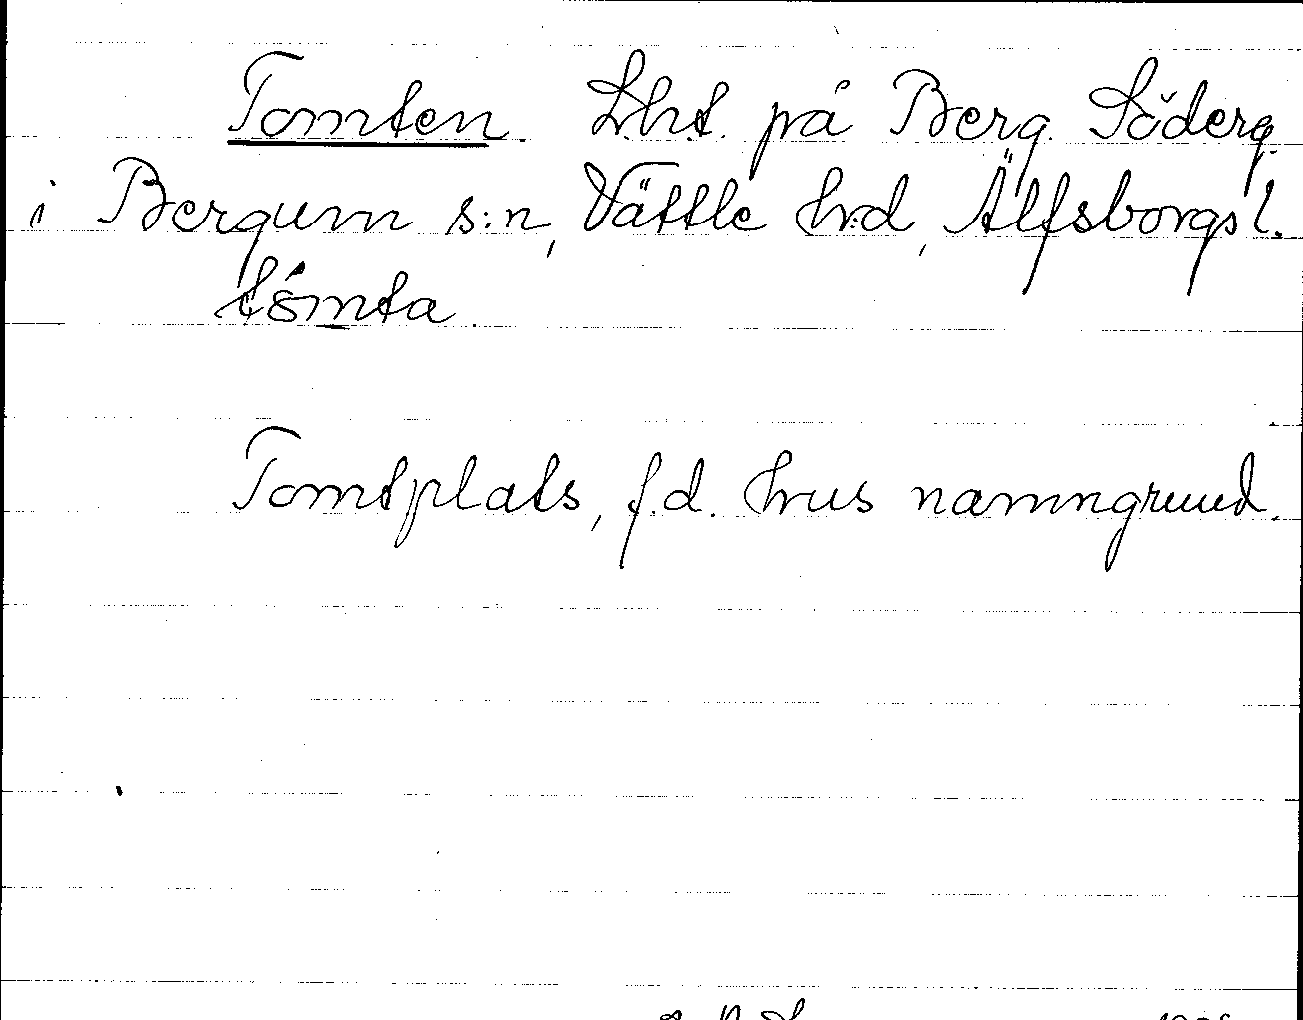 Tomten. Lht. på Berg Söderg.
i Bergum s:n, Vättle h:d, Älfsborgs l.
tómta
Tomtplats, f.d. hus namngrund.